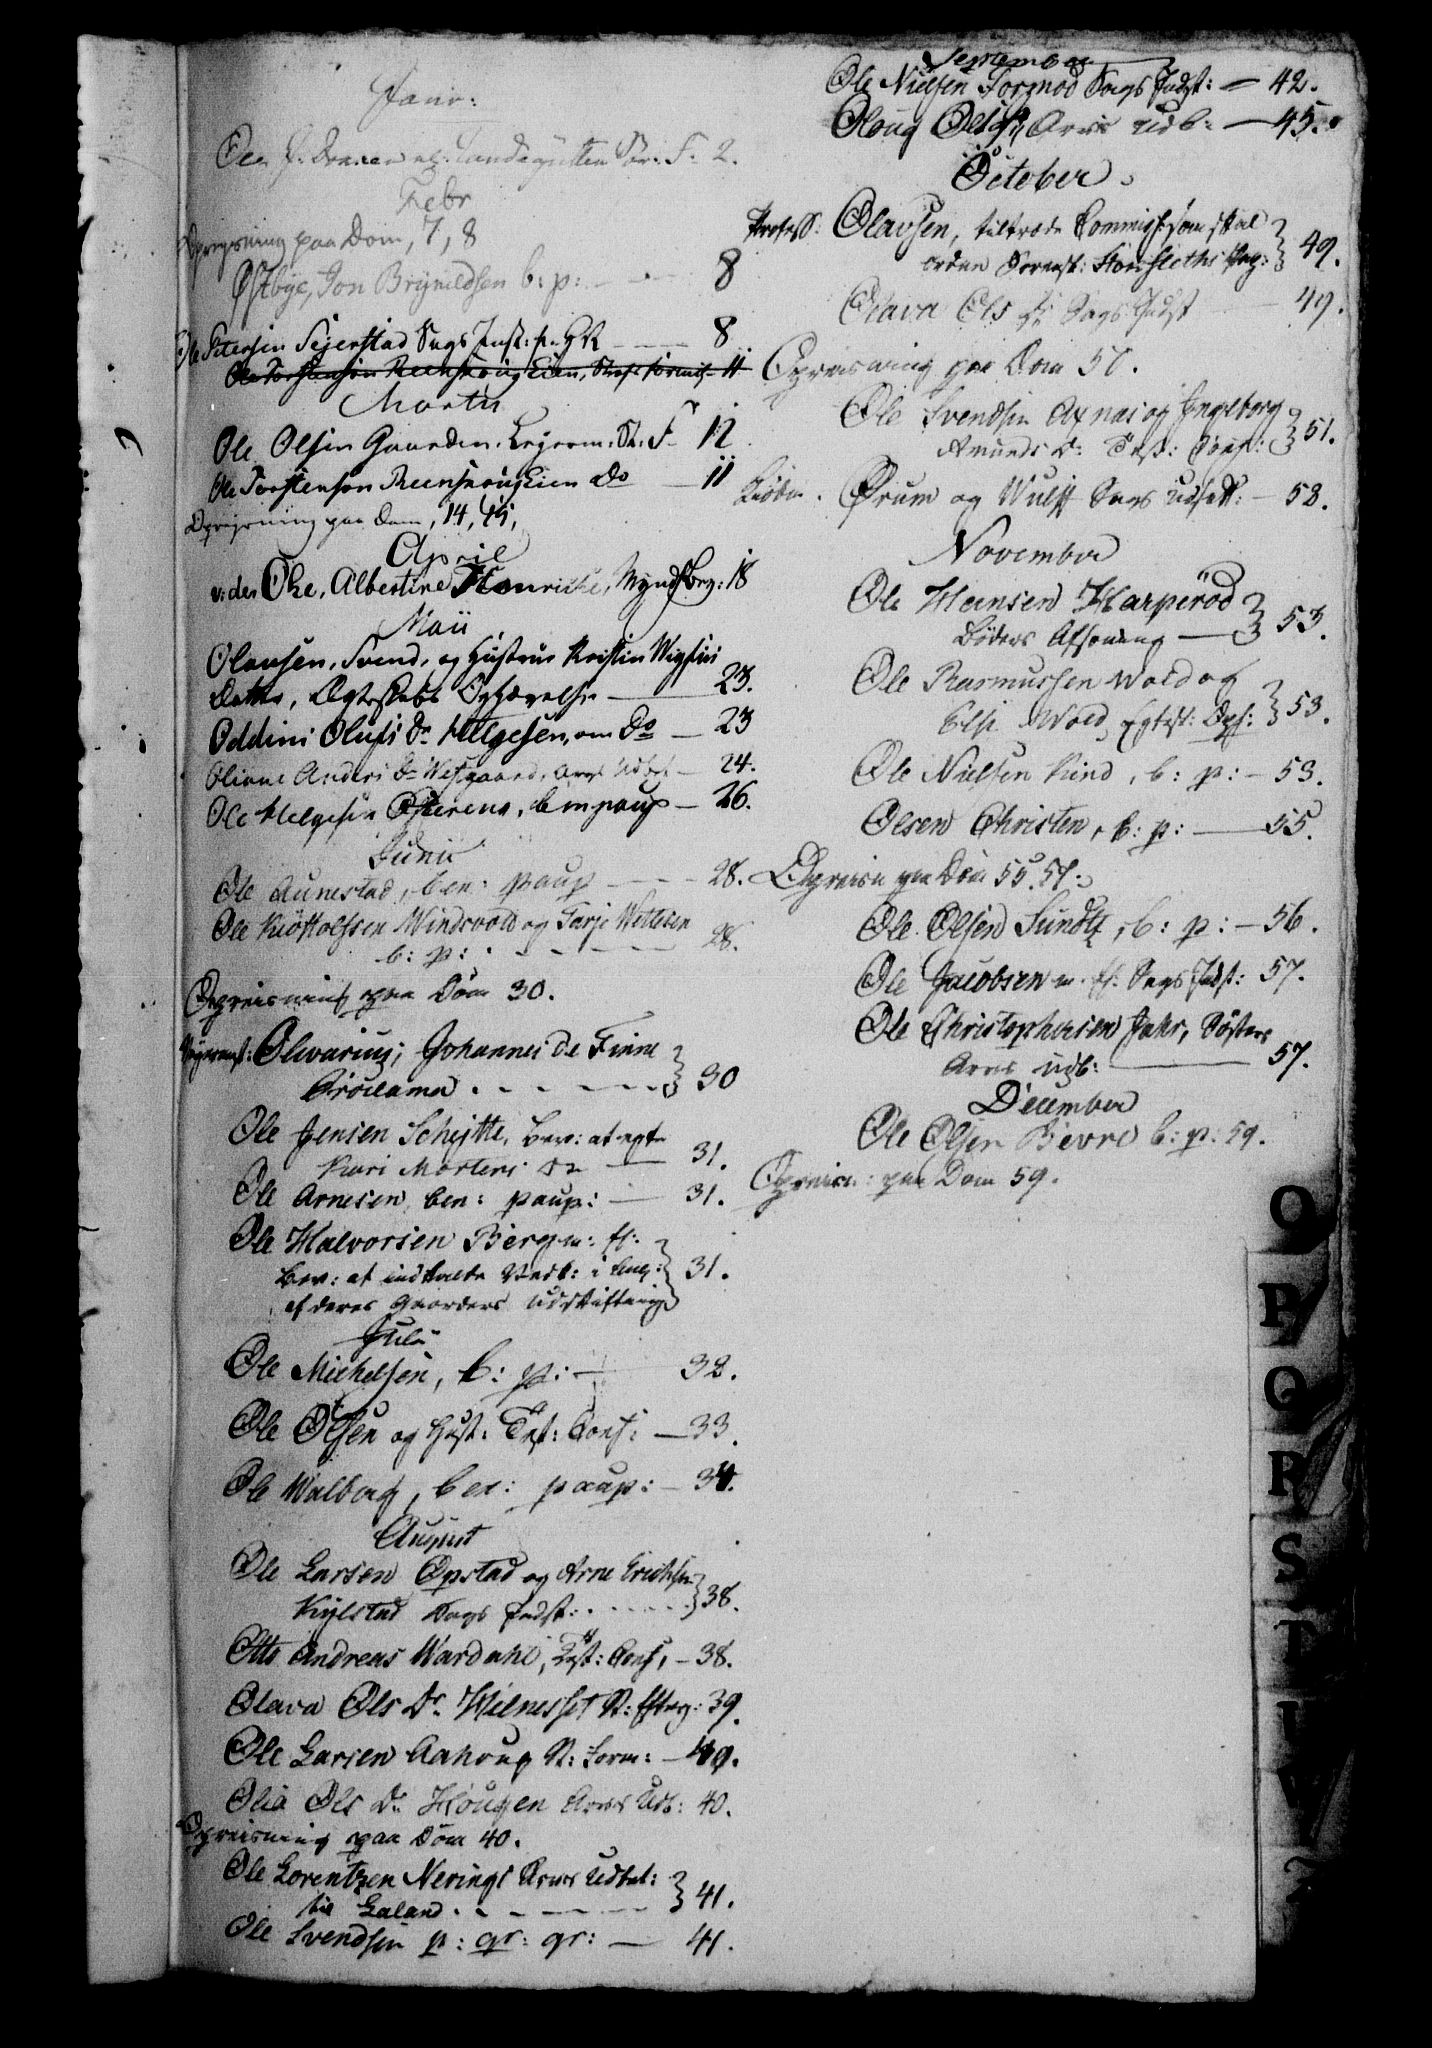 Janv:
Ole J: Dramen el: Landsgutten Sør: F. 2.
Febr
Opreisning paa Dom, 7, 8
Østbye, Jon Brynildsen b: p: — 8
Ole Petersen Sejerstad Sags Inst: f. HR — 8
Ole Torstensen Reenskougeien, — 11
Martii
Ole Olsen Gaarden, Lejerm: St: F 12
Ole Torstensen Reenskougeien Do — 11
Opreisning paa Dom, 14, 15,
April
v: der Ohe, Albertine Henriette, Mynd: Bev: 18
Maii
Olausen, Svend, og Hustrue Kristin Wigsius
Datter, Egteskabs Ophævelse — 23.
Oddine Olufs Dr Helgesen, om Do — 23
Oliane Anders Dr Westgaard, Arvs Udbet — 24.
Ole Helgesen Østerene, ben paup — 26.
Junii
Ole Aunestad, ben: paup — 28.
Ole Kiøstolfsen Windsvold og Tarje Wettesen
b: p: — 28.
Opreisning paa Dom 30.
Olivarius, Johannes de Finne
Proclama — 30
Ole Jensen Schejtte, Bev: at egte
Kari Mortens Dr — 31.
Ole Arnesen ben: paup: — 31.
Ole Halvorsen Berg m: fl:
Bev: at indkalde Vedk: i Anl:
af deres Gaarders Udskiftning } 31.
Julii
Ole Michelsen, b: p: — 32.
Ole Olsen og Hust: Test: Conf: — 33.
Ole Walberg, ben: paup: — 34.
August
Ole Larsen Opstad og Arne Erichsen
Kylstad Sags Indst: — 38.
Otto Andreas Wardahl, Test: Conf, — 38.
Olava Ols Dr. Hilnesset St: Efterg: 39.
Ole Larsen Aahoug St: Form: — 40.
Olia Ols Dr Hougen Arvs Udb: 40.
Opreisning paa Dom 40.
Ole Lorentzen Nerings Arvs Udbet:
til Laland — } 41.
Ole Svendsen p: gr: gr: — 41.
September
Ole Nielsen Formod Sags Indst: — 42.
Oloug Ols Dr Arvs Udb: — 45.
October
Profess: Olavsen, tiltræde Commission skal
ordne Forenst: Stamsleths } 49.
Olava Ols Dr Sags Indst — 49.
Opreisning paa Dom 50.
Ole Svendsen Axnæs og Ingeborg
Amunds Dr: Test: Conf: } 51.
Kiøbm. Ørum og Wulff Sags Udsætt: — 52.
November
Ole Hansen Harperød
Bøders Afsoning — } 53.
Ole Rasmussen Wold og
Else Wold, Egtesk: Oph: } 53.
Ole Nielsen Kind, b: p: — 53.
Olsen Christen, b: p: — 55.
Opreisn paa Dom 55. 57.
Ole Olsen Sundtz, b: p: — 56.
Ole Jacobsen m. fl: Sags Indst: 57.
Ole Christophersen Jahr, Søsters
Arvs udb: — 57.
December
Ole Olsen Bievre b: p: 59.
Opreisn: paa Dom 59.
O
P
Q
R
S
T
U
W